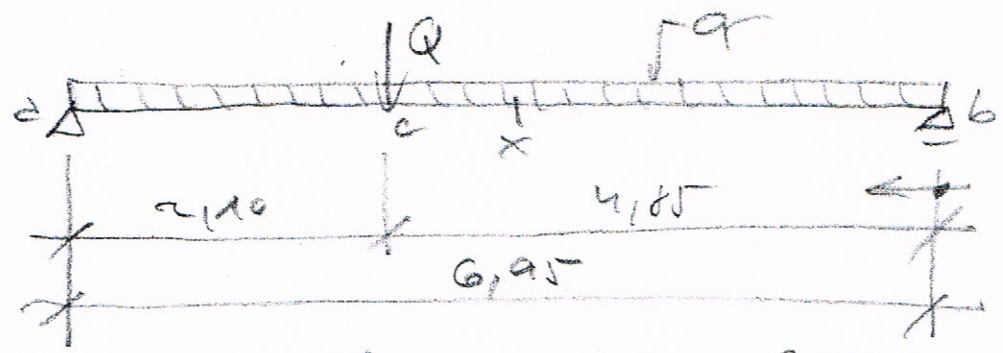 Q q
a c x b
2,10 4,85
6,95